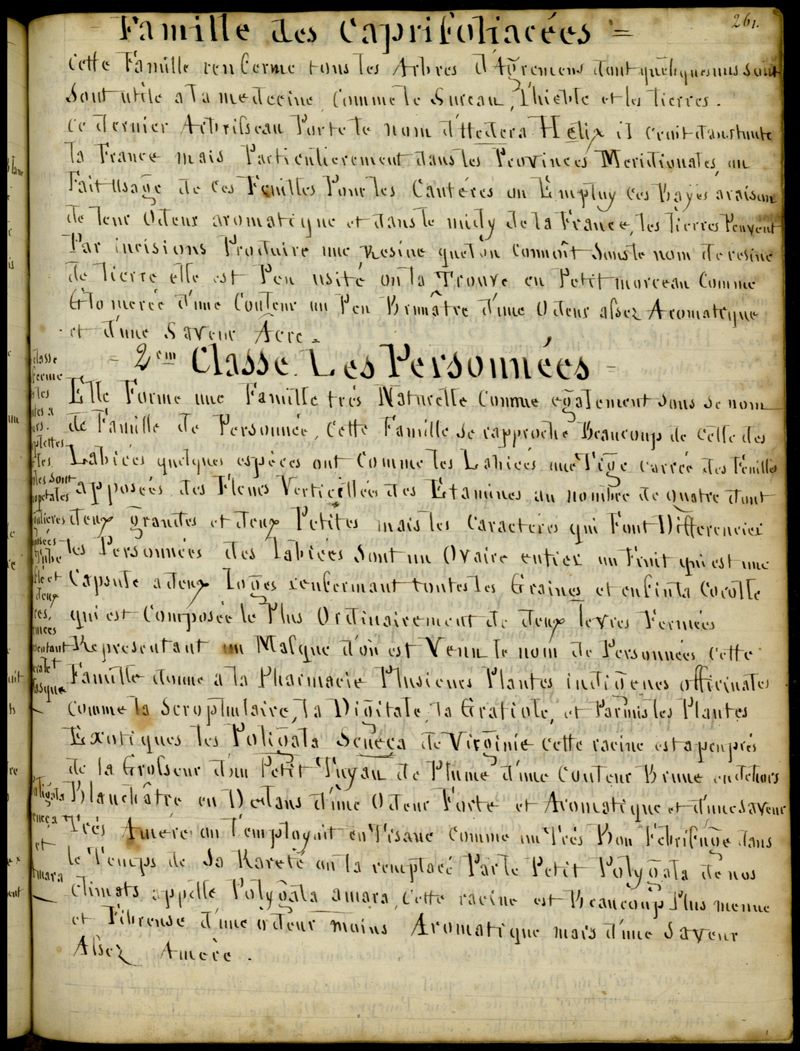 261.
Famille des Caprifoliacées =
Cette Famille renferme tous les Arbres d'Agremens dont quelques uns sont
Sont utile a la medecine, Comme le Sureau, l'hieble et les lierres.
Ce dernier Arbrisseau Porte le nom d'Hedera Helix il Croit dans toute
la France mais Particulierement dans les Provinces Meridionales on
Fait Usage de ces Feuilles Pour les Cautéres on Employ ces Bayes a raison
de leur Odeur aromatique et dans le midy de la France, les lierres Peuvent
Par incisions Produire une Resine que l'on Connoît Sous le nom de resine
de lierre elle est Peu usité on la Trouve en Petit morceau Comme
Glomerée d'une Couleur un Peu Brunâtre d'une Odeur assez Aromatique
et d'une Saveur Acre.
- 2em Classe. Les Personnées -
Elle Forme une Famille trés Naturelle Connue egalement sous se nom
de Famille de Personnée, Cette Famille se rapproche Beaucoup de Celle des
Labiées quelques espèces ont Comme les Labiées une Tige Carrée des Feuilles
apposées des Fleurs Verticillées des Etamines au nombre de quatre dont
deux grandes et deux Petites mais les Caracteres qui Font Differencier
les Personnées des labiées Sont un Ovaire entier un Fruit qui est une
Capsule a deux loges renfermant toutes les Graines et enfin la Corolle
qui est Composée le Plus Ordinairement de deux levres Fermées
Representant un Masque d'ou est Venu le nom de Personnées Cette
Famille donne a la Pharmacie Plusieurs Plantes indigenes officinales
Comme la Scrophulaire, la Digitale, la Gratiole, et Parmis les Plantes
Exotiques les Poligala Seneca de Virginie Cette racine est a peu prés
de la Grosseur d'un Petit Tuyau de Plume d'une Couleur Brune en dehors
Blanchâtre en Dedans d'une Odeur Forte et Aromatique et d'une Saveur
Très Amere on l'employait en Tisane Comme un Très Bon Febrifuge dans
le Temps de Sa Rareté on la remplacé Par le Petit Polygala de nos
Climats appellé Polygala amara, Cette racine est Beaucoup Plus menue
et Fibreuse d'une odeur moins Aromatique mais d'une Saveur
Assez Amere.